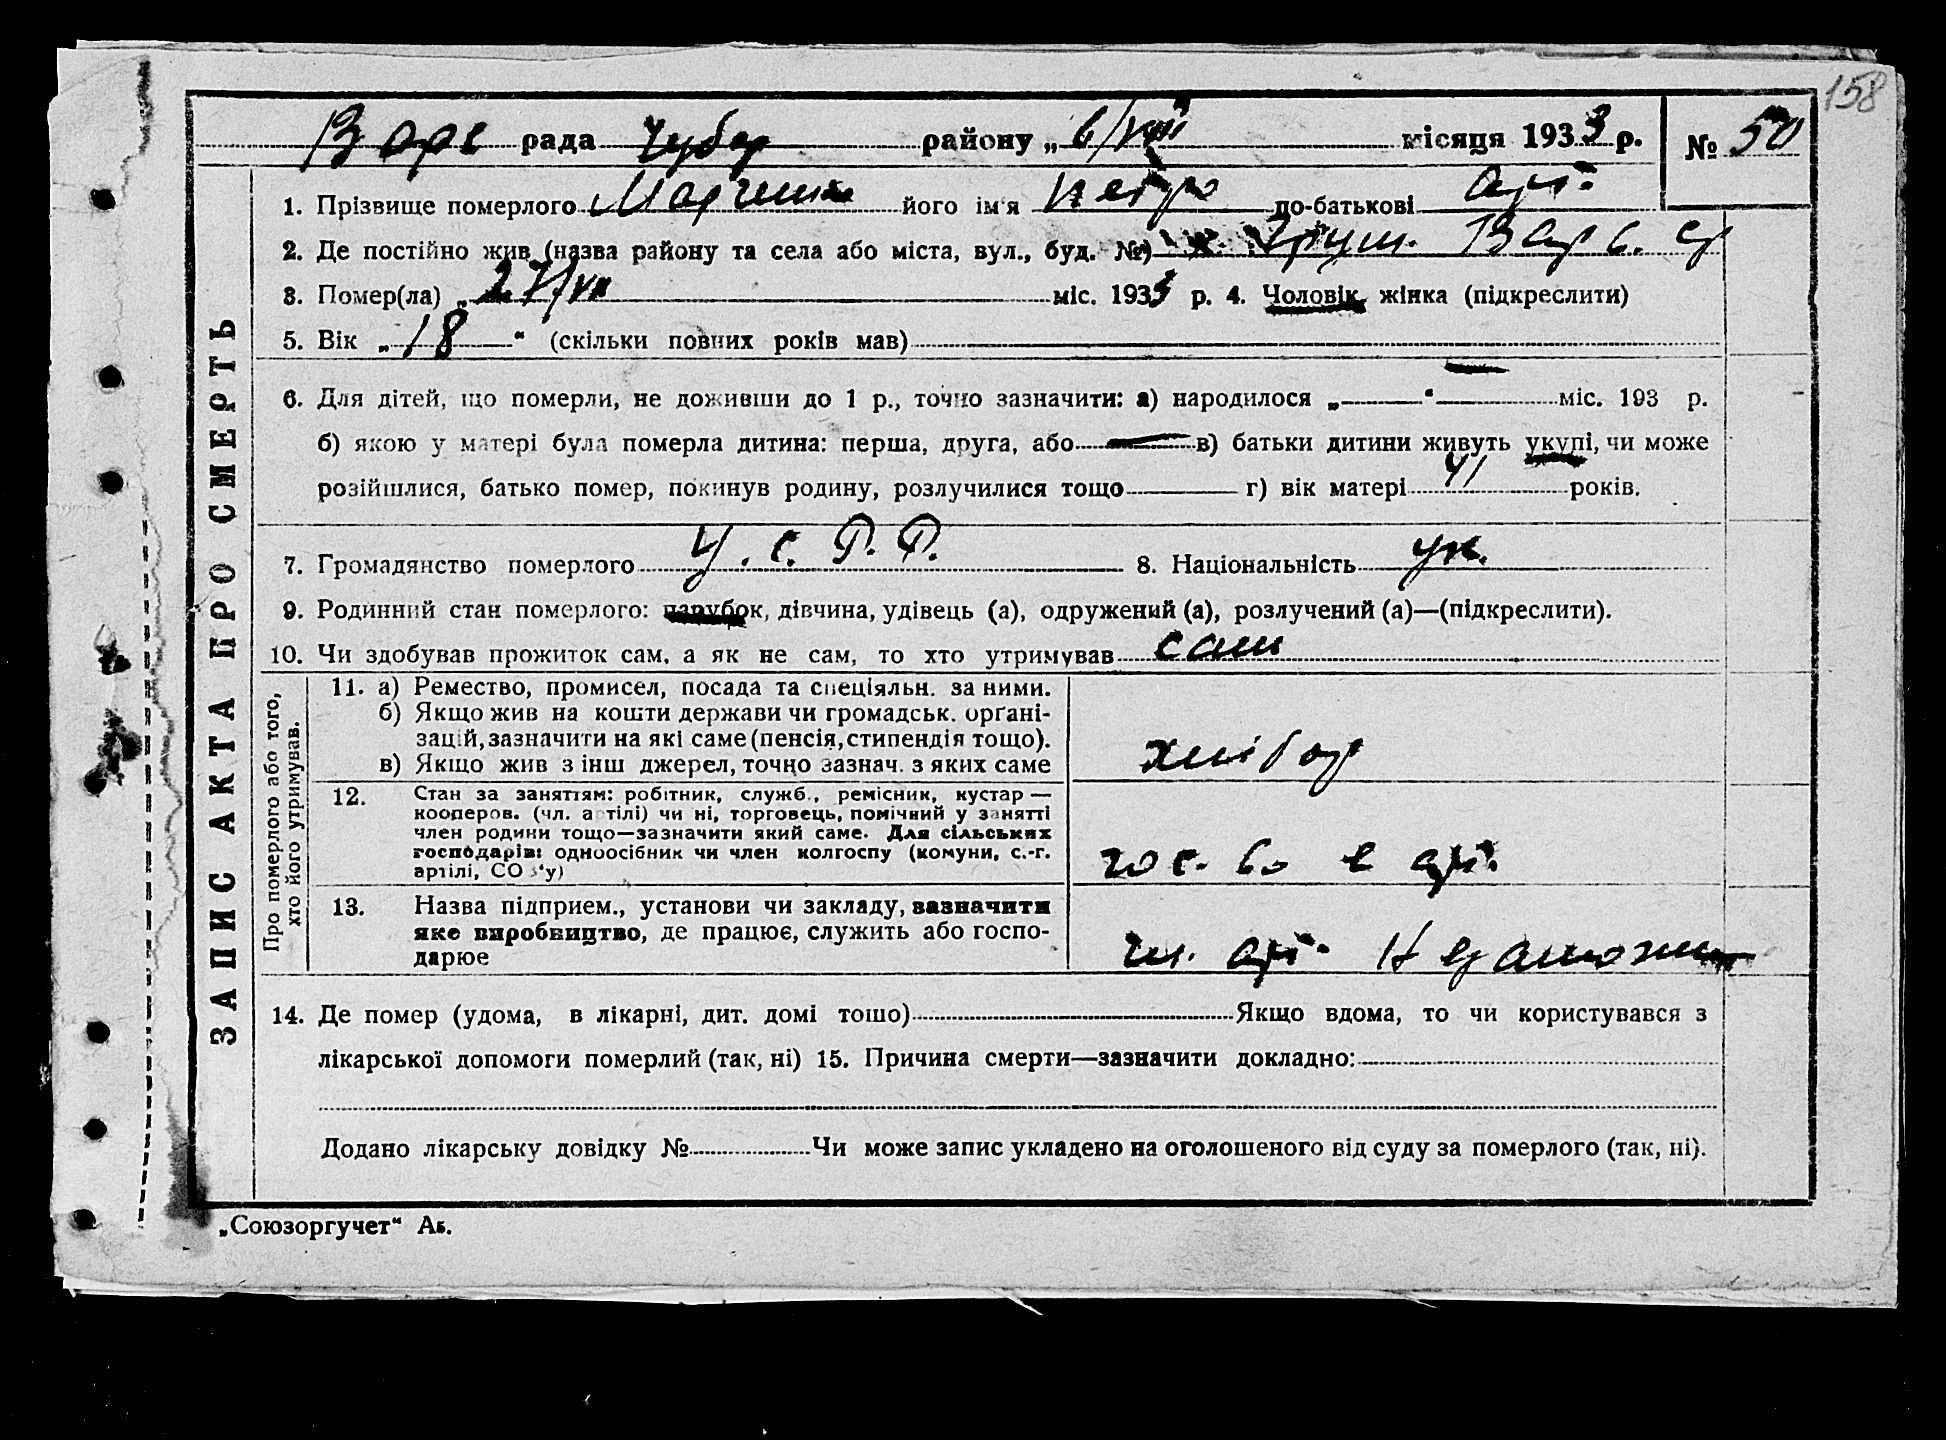 158
Варв рада Чубар району „ 6/VIII місяця 1933 р. № 50
ЗАПИС АКТА ПРО СМЕРТЬ
1. Прізвище померлого його ім'я Петро по-батькові Арт.
2. Де постійно жив (назва району та села або міста, вул., буд. №) Варв.
3. Помер(ла) „ 27/VII міс. 1933 р. 4. Чоловік, жінка (підкреслити)
5. Вік „ 18 “ (скільки повних років мав)
6. Для дітей, що померли, не доживши до 1 р., точно зазначити: а) народилося „ — “ міс. 193 р.
б) якою у матері була померла дитина: перша, друга, або — в) батьки дитини живуть укупі, чи може
розійшлися, батько помер, покинув родину, розлучилися тощо г) вік матері 41 років.
7. Громадянство померлого У.С.Р.Р. 8. Національність Ук.
9. Родинний стан померлого: парубок, дівчина, удівець (а), одружений (а), розлучений (а)—(підкреслити).
10. Чи здобував прожиток сам, а як не сам, то хто утримував сам
Про померлого або того, хто його утримував.
11. а) Ремество, промисел, посада та спеціяльн. за ними.
б) Якщо жив на кошти держави чи громадськ. орґані-
зацій, зазначити на які саме (пенсія, стипендія тощо).
в) Якщо жив з інш джерел, точно зазнач. з яких саме
хлібор
12. Стан за заняттям: робітник, служб., ремісник, кустар —
кооперов. (чл. артілі) чи ні, торговець, помічний у занятті
член родини тощо—зазначити який саме. Для сільських
господарів: одноосібник чи член колгоспу (комуни, с.-г.
артілі, СОЗ'у)
13. Назва підприєм., установи чи закладу, зазначити
яке виробництво, де працює, служить або госпо-
дарює
чл. арт. Незаможник
14. Де помер (удома, в лікарні, дит. домі тощо) Якщо вдома, то чи користувався з
лікарської допомоги померлий (так, ні) 15. Причина смерти—зазначити докладно:
Додано лікарську довідку № Чи може запис укладено на оголошеного від суду за померлого (так, ні).
„Союзоргучет“ Аб.